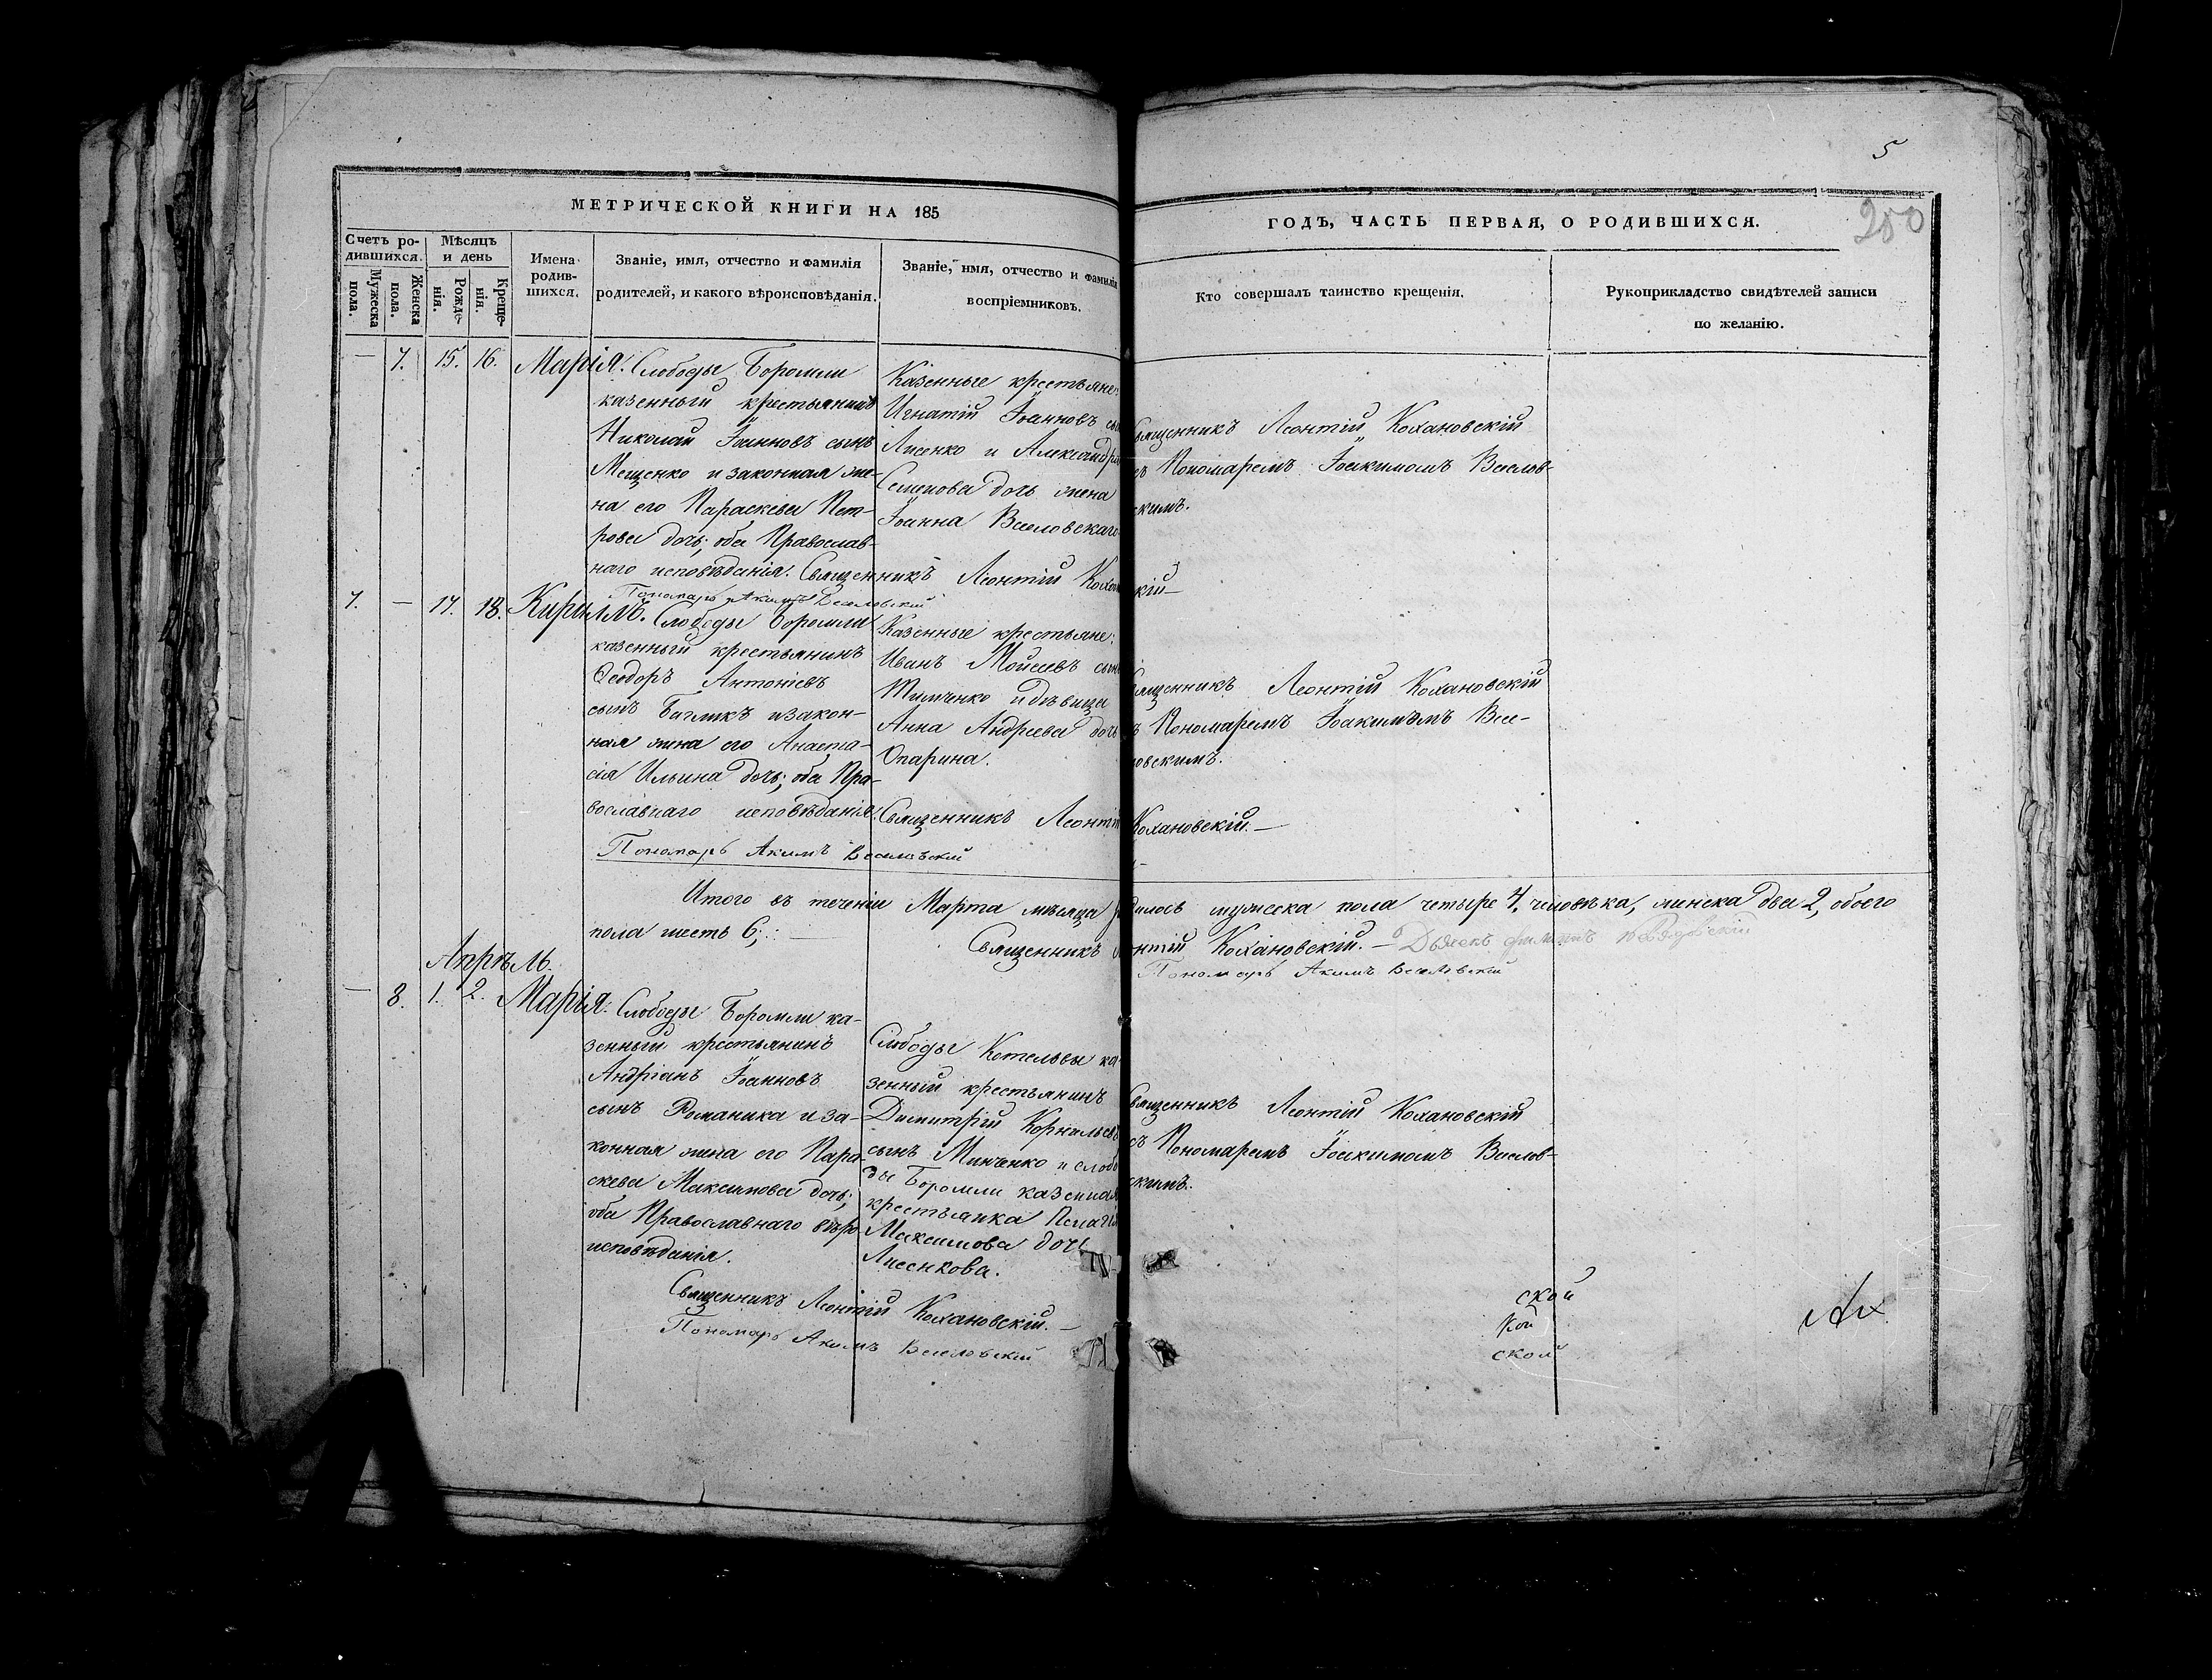 5
250
МЕТРИЧЕСКОЙ КНИГИ НА 185
ГОДЪ, ЧАСТЬ ПЕРВАЯ, О РОДИВШИХСЯ.
Счетъ ро-
дившихся.
Мужеска пола.
Женска пола.
Мѣсяцъ
и день
Рожде-
нія.
Креще-
нія.
Имена
родив-
шихся.
Званіе, имя, отчество и фамилія
родителей, и какого вѣроисповѣданія.
Званіе, имя, отчество и фамилія
воспріемниковъ.
Кто совершалъ таинство крещенія.
Рукоприкладство свидѣтелей записи
по желанію.
— 7. 15. 16. Марія.
Слободы Боромли
казенный крестьянинъ
Николай Іоанновъ сынъ
Мещенко и законная же-
на его Параскева Пет-
рова дочь; оба Православ-
наго исповѣданія.
Казенные крестьяне:
Игнатій Іоанновъ сы
Лисенко и Александра
Семенова дочь жена
Іоанна Веселовскаго
вященникъ Леонтій Кохановскій
съ Пономаремъ Іоакимомъ Веселов-
скимъ.
Священникъ Леонтій Кохан
кій—
Пономарь Акимъ Веселовский
7. — 17. 18. Кирилъ.
Слободы Боромли
казенный крестьянинъ
Ѳеодоръ Антоніевъ
сынъ Багликъ и закон-
ная жена его Анаста-
сія Ильина дочь; оба Пра-
вославнаго исповѣданія.
Казенные крестьяне:
Иванъ Моисеевъ сынъ
Тимченко и дѣвица
Анна Андреева дочь
Опарина.
вященникъ Леонтій Кохановскій
ъ Пономаремъ Іоакимѣмъ Весе-
ловскимъ.
Священникъ Леонтій
Кохановскій.—
Пономарь Акимъ Веселовский
Итого въ теченіи Марта мѣсяца р
дилось мужеска пола четыре 4, человѣка, женска два 2, обоего
пола шесть 6;
Священникъ
нтій Кохановскій.—
Пономарь Акимъ Веселовский
Апрѣль.
— 8. 1. 2. Марія.
Слободы Боромли ка-
зенный крестьянинъ
Андріанъ Іоанновъ
сынъ Романика и за-
конная жена его Пара-
скева Максимова дочь;
оба Православнаго вѣро
исповѣданія.
Слободы Котельвы ка-
зенный крестьянинъ
Димитрій Корнильевъ
сынъ Минченко и слобо
ды Боромли казенная
крестьянка Пелагія
Максимова дочь
Лисенкова.
вященникъ Леонтій Кохановскій
съ Пономаремъ Іоакимомъ Веселов-
скимъ.
Священникъ Леонтій Кохановскій.—
Пономарь Акимъ Веселовский
ской
кой
ской